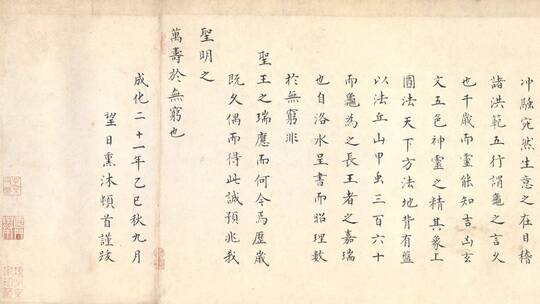 沖融宛然生意之在目稽
諸洪範五行謂龜之言久
也千歲而靈能知吉凶玄
文五色神靈之精其象上
圓法天下方法地背有盤
以法丘山甲虫三百六十
而龜為之長王者之嘉瑞
也自洛水呈書而昭理數
於無窮非
聖王之瑞應而何今為歷歲
既久偶而得此誠預兆我
聖明之
萬壽於無窮也
成化二十一年乙巳秋九月
望日熏沐頓首謹跋